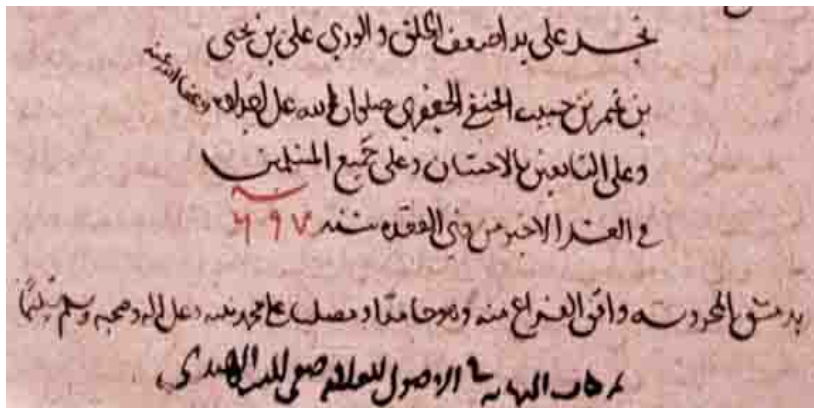 نجد على يد اضعف الخلق و الوري على بن يحيى
بن عمر بن حبيب الحنفي الجعفري صلوان الله على
وعلى التابعين بالاحسان وعلى جميع المسلمين
في العشر الاخير من ذي القعده سنه ٦٩٧
بدمشق المحروسه وافق الفراغ منه وهو حامدا ومصليا على محمد نبيه وعلى اله وصحبه وسلم تسليما
كتاب النهايه في الاصول للعلامه صفي الدين الهندي